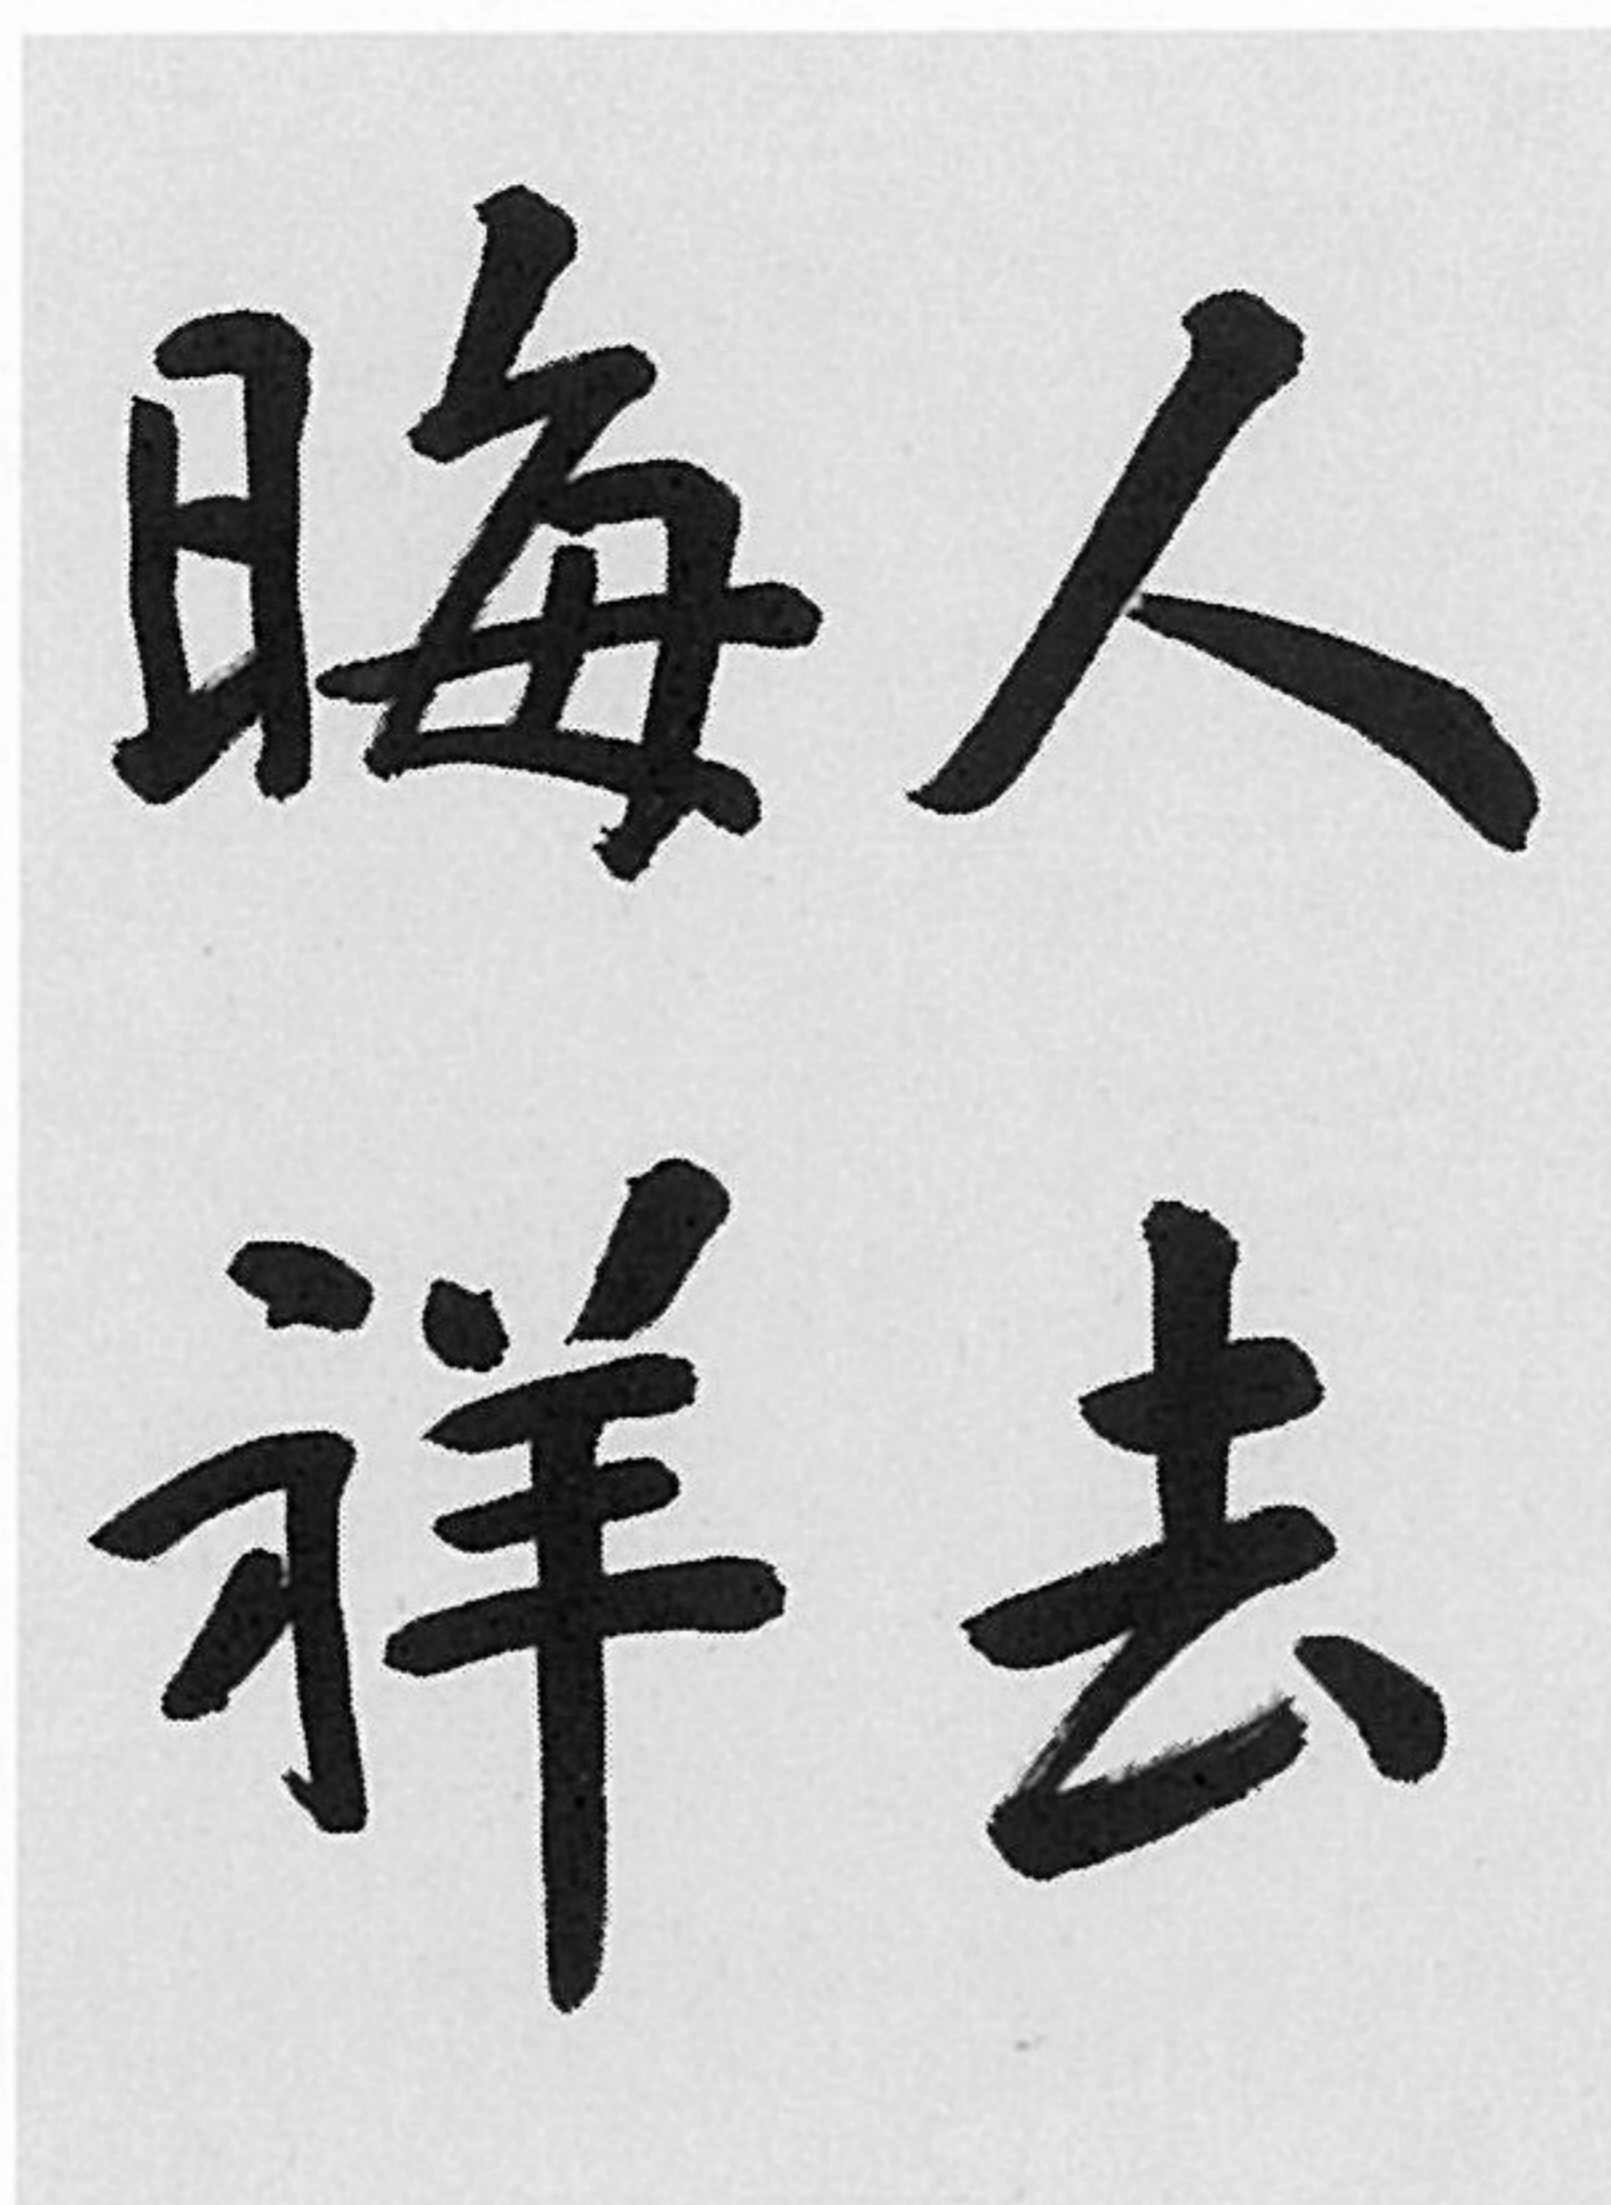 人去
晦祥